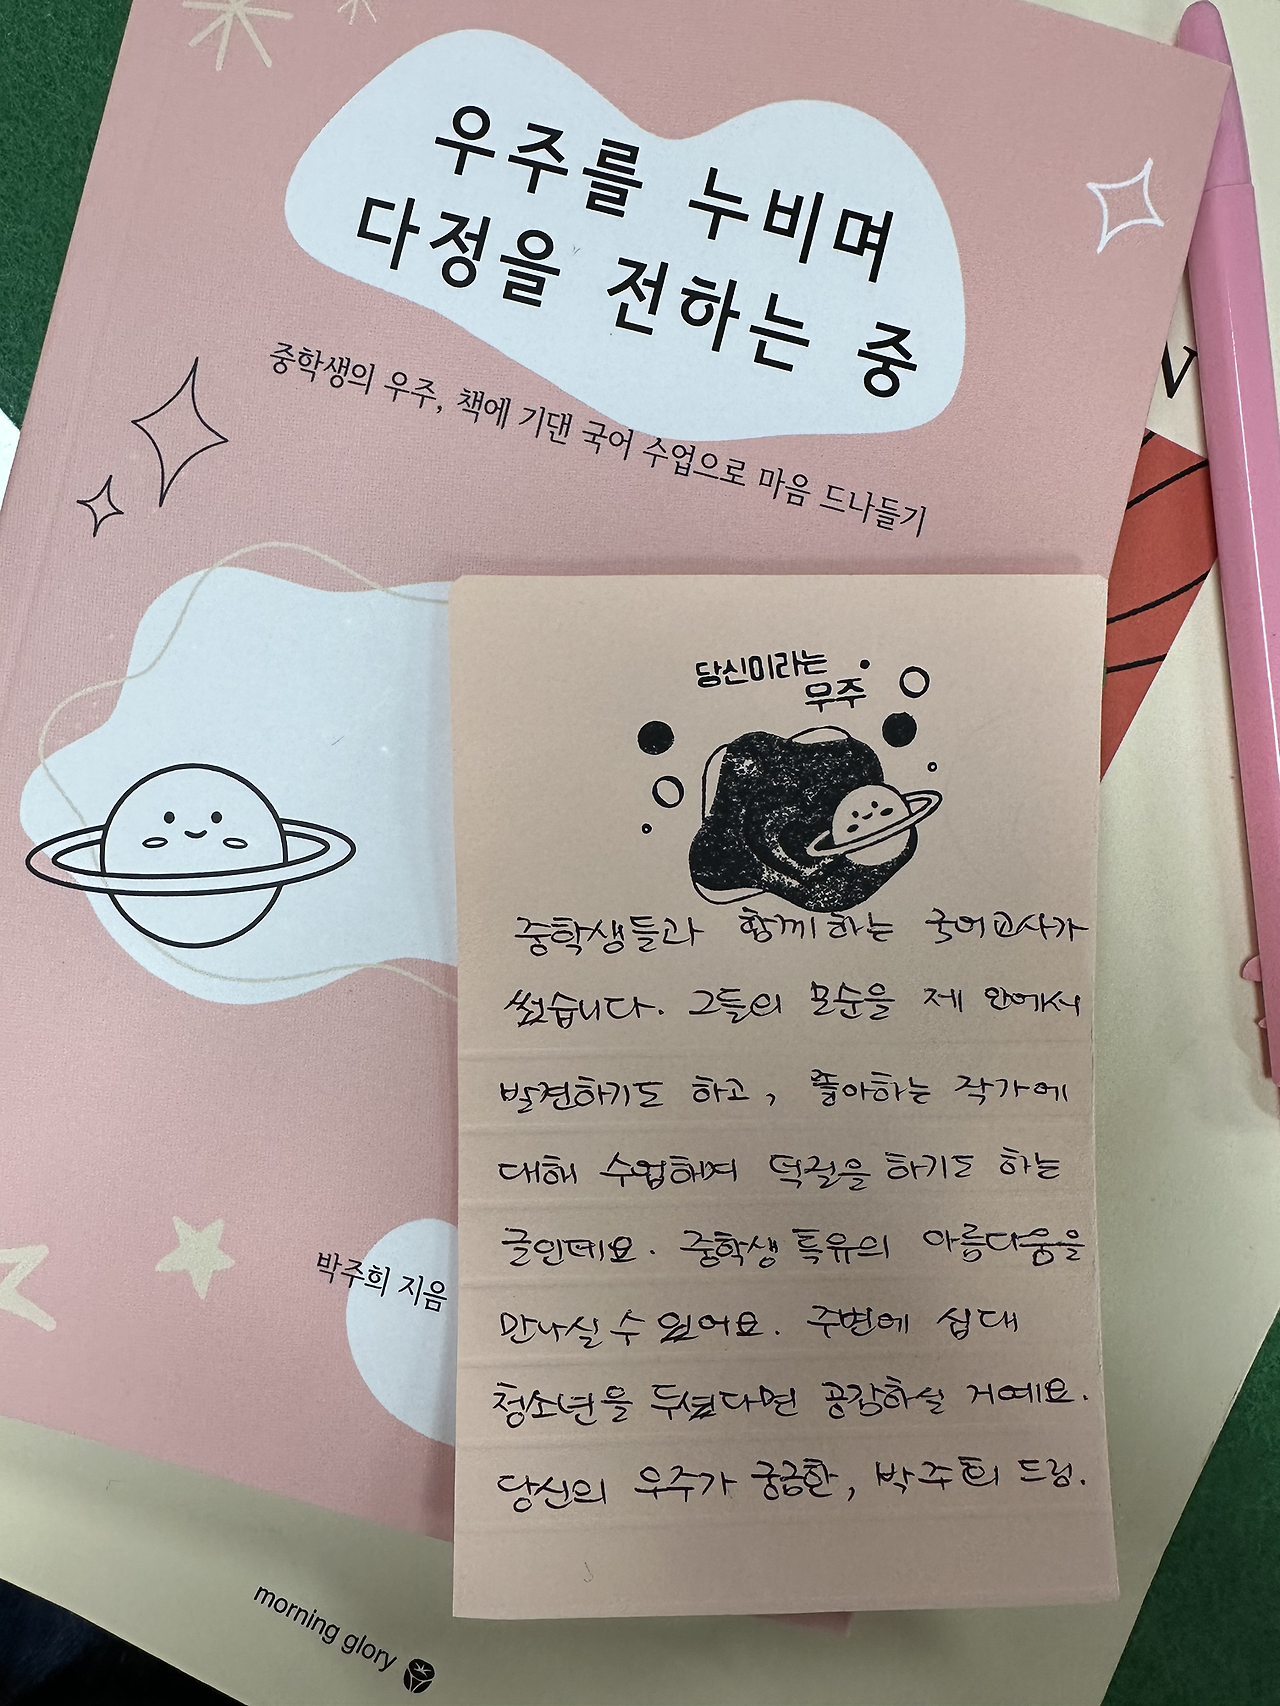 우주를 누비며
다정을 전하는 중
중학생의 우주, 책에 기댄 국어 수업으로 마음 드나들기
당신이라는
우주
중학생들과 함께하는 국어교사가
썼습니다. 그들의 모순을 제 안에서
발견하기도 하고, 좋아하는 작가에
대해 수업하며 덕질을 하기도 하는
글인데요. 중학생 특유의 아름다움을
만나실 수 있어요. 주변에 십대
청소년을 두셨다면 공감하실 거예요.
당신의 우주가 궁금한, 박주희 드림.
박주희 지음
morning glory